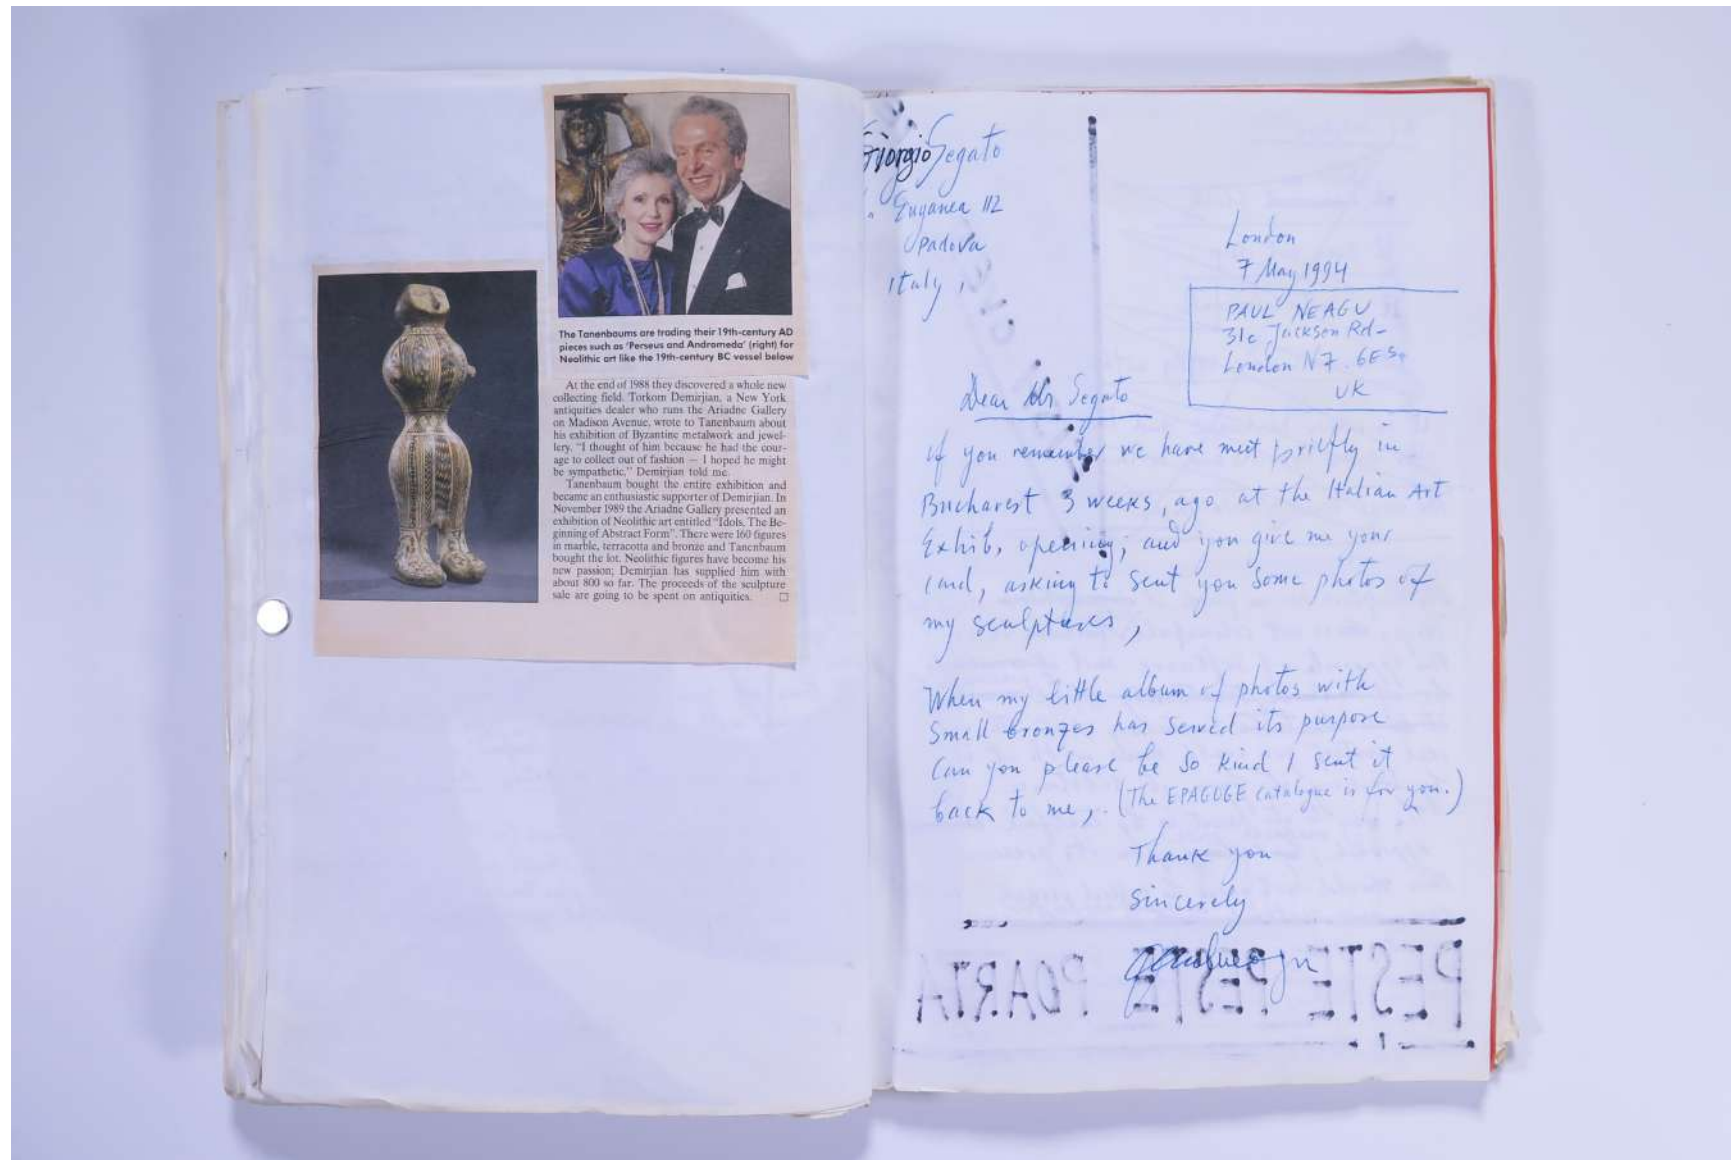 The Tanenbaums are trading their 19th-century AD
pieces such as 'Perseus and Andromeda' (right) for
Neolithic art like the 19th-century BC vessel below
At the end of 1988 they discovered a whole new
collecting field. Torkom Demirjian, a New York
antiquities dealer who runs the Ariadne Gallery
on Madison Avenue, wrote to Tanenbaum about
his exhibition of Byzantine metalwork and jewel-
lery. "I thought of him because he had the cour-
age to collect out of fashion — I hoped he might
be sympathetic," Demirjian told me.
Tanenbaum bought the entire exhibition and
became an enthusiastic supporter of Demirjian. In
November 1989 the Ariadne Gallery presented an
exhibition of Neolithic art entitled "Idols, The Be-
ginning of Abstract Form". There were 160 figures
in marble, terracotta and bronze and Tanenbaum
bought the lot. Neolithic figures have become his
new passion; Demirjian has supplied him with
about 800 so far. The proceeds of the sculpture
sale are going to be spent on antiquities.
Giorgio Segato
Euganea 112
Padova
Italy,
London
7 May 1994
PAUL NEAGU
31c Jackson Rd-
London N7. 6ES
UK
Dear Mr. Segato
if you remember we have meet briefly in
Bucharest 3 weeks, ago at the Italian Art
Exhib, opening, and you give me your
card, asking to sent you some photos of
my sculptures,
When my little album of photos with
Small bronzes has served its purpose
Can you please be so kind & sent it
back to me,. (The EPAGOGE catalogue is for you.)
Thank you
Sincerely
PESTE PESTE POARTA